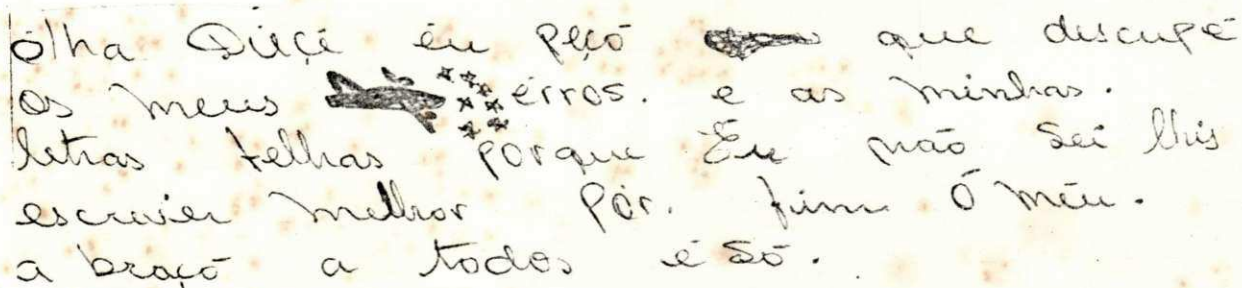 ólha Dilçi éu peço que discupé
os meus érros. e as minhas.
letras felhas porque Éu não Sei lhis
escrivier melhor pór. fim Ó méu.
a braçó a todos é Só.